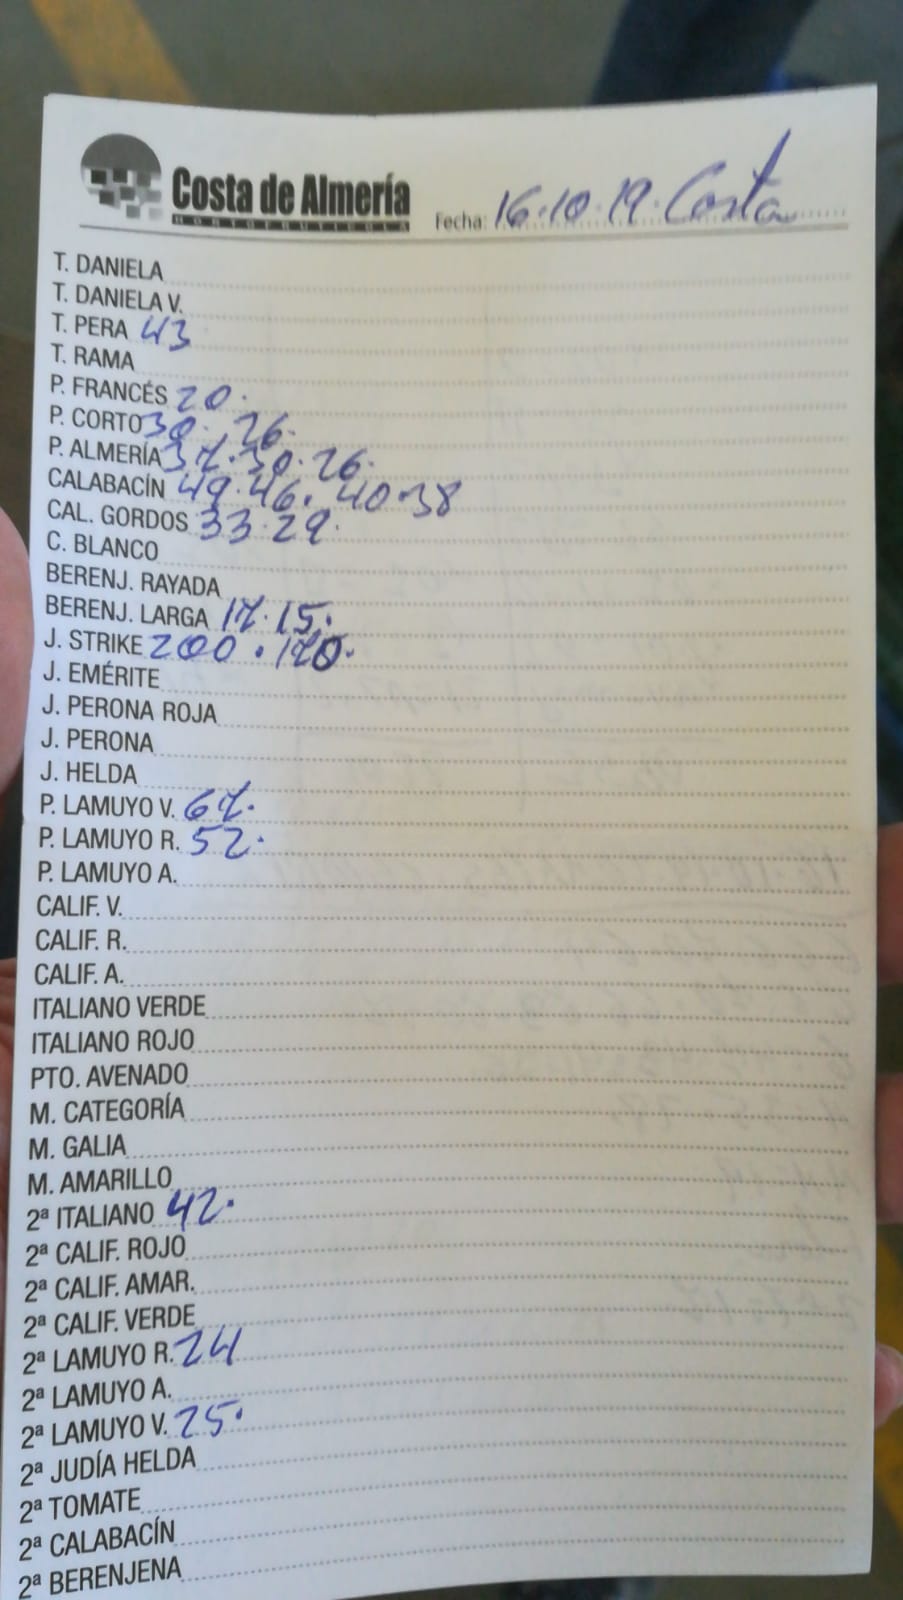 Costa de Almería
HORTOFRUTÍCOLA
Fecha: 16.10.19. Costa
T. DANIELA
T. DANIELA V.
T. PERA 43
T. RAMA
P. FRANCÉS 20.
P. CORTO 30. 26.
P. ALMERÍA 37. 30. 26.
CALABACÍN 49. 46. 40. 38
CAL. GORDOS 33. 29.
C. BLANCO
BERENJ. RAYADA
BERENJ. LARGA 17. 15.
J. STRIKE 200. 170.
J. EMÉRITE
J. PERONA ROJA
J. PERONA
J. HELDA
P. LAMUYO V. 67.
P. LAMUYO R. 52.
P. LAMUYO A.
CALIF. V.
CALIF. R.
CALIF. A.
ITALIANO VERDE
ITALIANO ROJO
PTO. AVENADO
M. CATEGORÍA
M. GALIA
M. AMARILLO
2ª ITALIANO 42.
2ª CALIF. ROJO
2ª CALIF. AMAR.
2ª CALIF. VERDE
2ª LAMUYO R. 24
2ª LAMUYO A.
2ª LAMUYO V. 25.
2ª JUDÍA HELDA
2ª TOMATE
2ª CALABACÍN
2ª BERENJENA